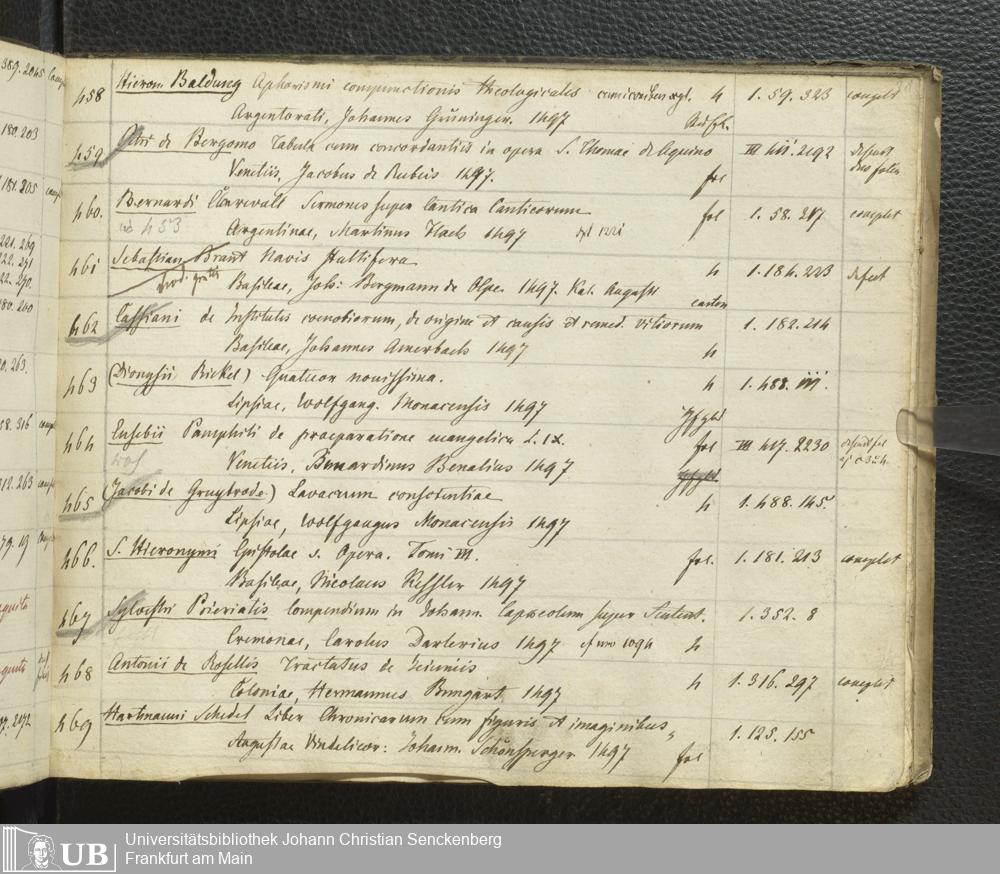 389. 2045 comp
180. 203
181. 205
221. 269
222. 271
22. 270.
180. 260
20. 263.
58. 316
212. 263
79. 19
2172
458 Hieron Baldung Aphorismi compunctionis theologicalis 4 1. 59. 323 complet
Argentorati, Johannes Grüninger. 1497
459 Petri de Bergomo Tabula cum concordantiis in opera S. Thomae de Aquino III 2192 defect
Venetiis, Jacobus de Rubeis 1497. fol duo folia
460. Bernardi Clarevall Sermones super Cantica Canticorum fol 1. 58. 217 complet
453 Argentinae, Martinus Flach 1497
461 Sebastian Brant Navis Stultifera 4 1. 184. 223 defect
Basileae, Joh: Bergmann de Olpe. 1497. Kal. Augusti
462 Cassiani de Institutis coenobiorum, de origine et causis et remed. vitiorum 1. 182. 214
Basileae, Johannes Amerbach 1497 4
463 (Dionysii Rickel) Quatuor novissima. 4 1. 488.
Lipsiae, Wolfgang. Monacensis 1497
464 Eusebii Pamphili de praeparatione evangelica L. IX. fol III 417. 2230
Venetiis, Bernardinus Benalius 1497
465 (Jacobi de Gruytrode) Lavacrum conscientiae 4 1. 488. 145.
Lipsiae, Wolfgangus Monacensis 1497
466. S. Hieronymi Epistolae s. Opera. Tomi III. fol. 1. 181. 213 complet
Basileae, Nicolaus Kessler 1497
467 Sylvestri Prieriatis Compendium in Johann. Capreolum super Sentent. 1. 352. 8
Cremonae, Carolus Darlerius 1497 4
468 Antonii de Rosellis Tractatus de Jeiuniis
Coloniae, Hermannus Bungart 1497 4 1. 316. 297 complet
469 Hartmanni Schedel Liber Chronicarum cum figuris et imaginibus, 1. 125. 155
Augustae Vindelicor: Johann. Schönsperger 1497 fol
UB Universitätsbibliothek Johann Christian Senckenberg
Frankfurt am Main